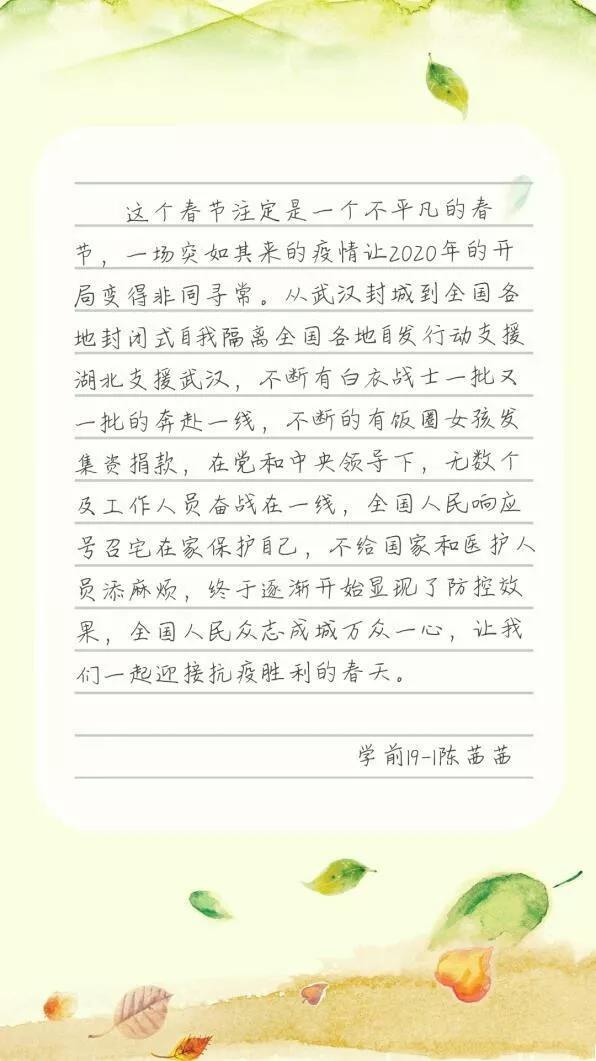 这个春节注定是一个不平凡的春
节，一场突如其来的疫情让2020年的开
局变得非同寻常。从武汉封城到全国各
地封闭式自我隔离全国各地自发行动支援
湖北支援武汉，不断有白衣战士一批又
一批的奔赴一线，不断的有饭圈女孩发
集资捐款，在党和中央领导下，无数个
及工作人员奋战在一线，全国人民响应
号召宅在家保护自己，不给国家和医护人
员添麻烦，终于逐渐开始显现了防控效
果，全国人民众志成城万众一心，让我
们一起迎接抗疫胜利的春天。
学前19-1陈茜茜